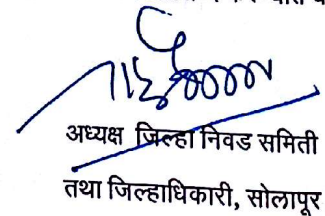 अध्यक्ष जिल्हा निवड समिती
तथा जिल्हाधिकारी, सोलापूर